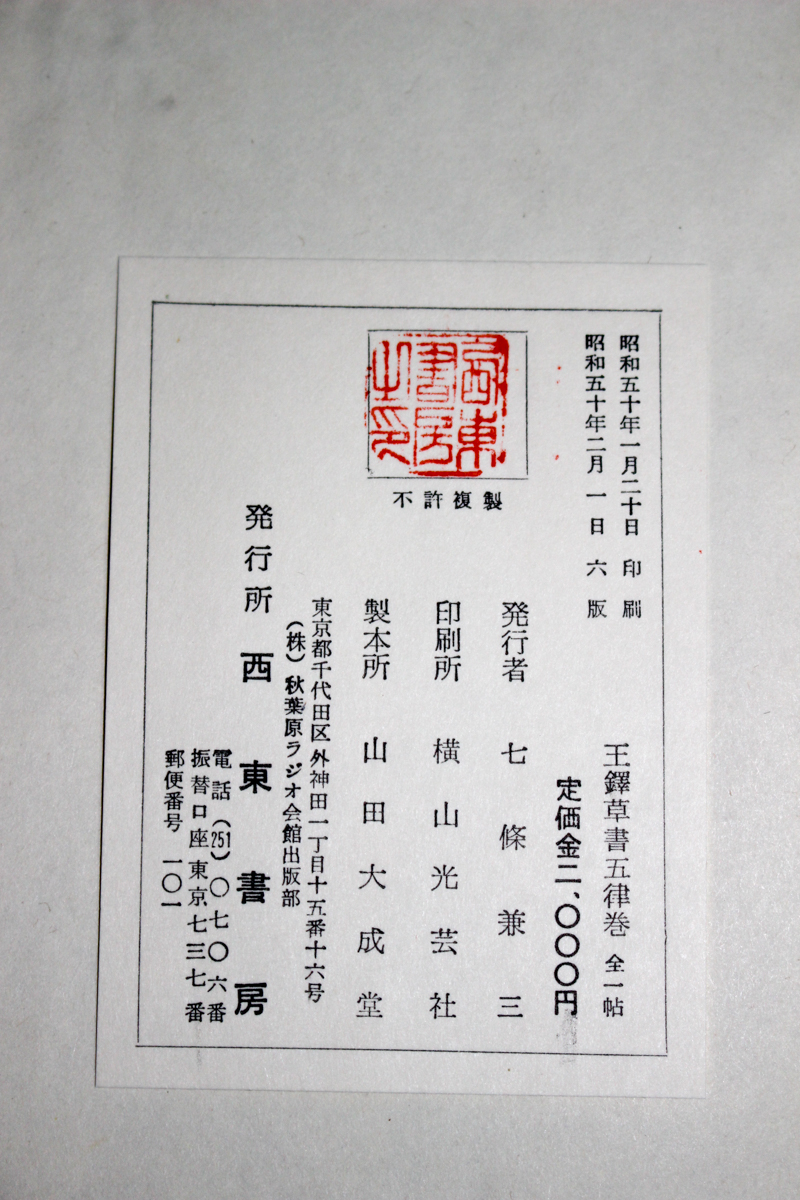 昭和五十年一月二十日 印刷
昭和五十年二月一日 六版
王鐸草書五律巻 全一帖
定価金二、〇〇〇円
西東書房之印
不許複製
発行者 七條兼三
印刷所 横山光芸社
製本所 山田大成堂
東京都千代田区外神田一丁目十五番十六号
(株)秋葉原ラジオ会館出版部
発行所 西東書房
電話(251)〇七〇六番
振替口座東京七三七番
郵便番号 一〇一